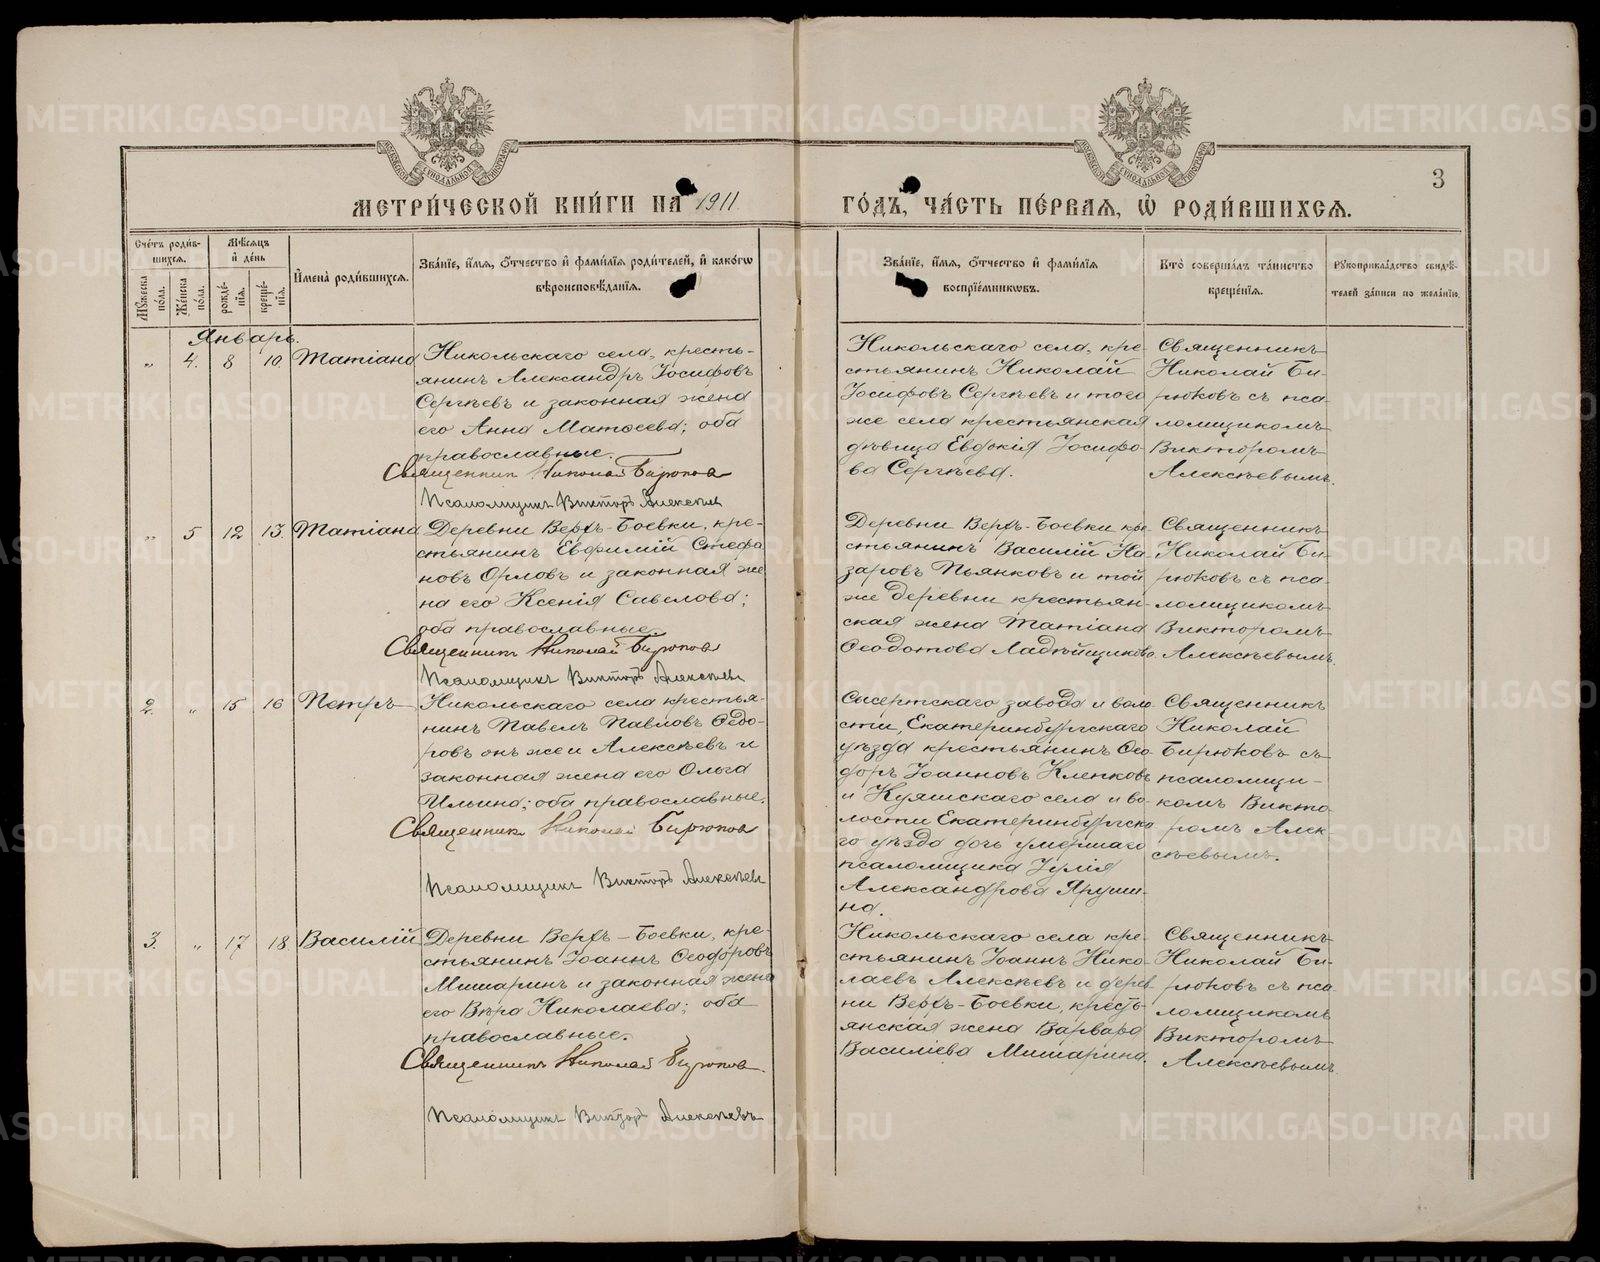 МЕТРИ́ЧЕСКОЙ КНИ́ГИ НА 1911
ГО́ДЪ, ЧА́СТЬ ПЕ́РВАЯ, Ѡ РОДИ́ВШИХСЯ.
3
Сче́тъ роди́в-
шихся.
Мѣ́сяцъ
и де́нь
Му́жеска
по́ла.
Же́нска
по́ла.
рожде́-
нія.
креще́-
нія.
Имена̀ роди́вшихся.
Зва́ніе, и́мя, о́тчество и фами́лія роди́телей, и како́гѡ
вѣроисповѣ́данія.
Зва́ніе, и́мя, о́тчество и фами́лія
воспріе́мникѡвъ.
Кто̀ соверша́лъ та́инство
креще́нія.
Рꙋкоприкла́дство свидѣ́-
телей за́писи по жела́нію.
Январь.
„ 4. 8 10. Татіана
Никольскаго села, кресть-
янинъ Александръ Іосифовъ
Сергѣевъ и законная жена
его Анна Матѳеева; оба
православные.
Священник Николай Бирюков
Псаломщикъ Викторъ Алексѣевъ
Никольскаго села, кре-
стьянинъ Николай
Іосифовъ Сергѣевъ и того
же села крестьянская
дѣвица Евдокія Іосифо-
ва Сергѣева.
Священникъ
Николай Би-
рюковъ съ пса-
ломщикомъ
Викторомъ
Алексѣевымъ.
„ 5 12 13. Татіана
Деревни Верхъ-Боевки, кре-
стьянинъ Евфимій Стефа
новъ Орловъ и законная же
на его Ксенія Савелова;
оба православные.
Священникъ Николай Бирюков
Псаломщикъ Викторъ Алексѣевъ
Деревни Верхъ-Боевки кре-
стьянинъ Василій На
заровъ Пьянковъ и той
же деревни крестьян-
ская жена Татіана
Ѳеодотова Ладѣйщикова.
Священникъ
Николай Би-
рюковъ съ пса-
ломщикомъ
Викторомъ
Алексѣевымъ.
2. „ 15 16 Петръ
Никольскаго села крестья-
нинъ Павелъ Павловъ Ѳедо-
ровъ онъ же и Алексѣевъ и
законная жена его Ольга
Ильина; оба православные.
Священник Николай Бирюков
Псаломщикъ Викторъ Алексѣевъ
Сысертскаго завода и воло
сти, Екатеринбургскаго
уѣзда крестьянинъ Ѳео
доръ Іоанновъ Кленковъ
и Куяшскаго села и во-
лости Екатеринбургска
го уѣзда дочь умершаго
псаломщика Іулія
Александрова Ярушина.
на.
Священникъ
Николай
Бирюковъ съ
псаломщи-
комъ Викто
ромъ Алек-
сѣевымъ.
3. „ 17 18. Василій
Деревни Верхъ-Боевки, кре-
стьянинъ Іоаннъ Ѳеодоровъ
Мишаринъ и законная жена
его Вѣра Николаева; оба
православные.
Священникъ Николай Бирюков.
Псаломщикъ Викторъ Алексѣевъ
Никольскаго села кре-
стьянинъ Іоаннъ Нико-
лаевъ Алексѣевъ и дерев
ни Верхъ-Боевки, кресть-
янская жена Варвара
Василіева Мишарина.
Священникъ
Николай Би-
рюковъ съ пса-
ломщикомъ
Викторомъ
Алексѣевымъ.
METRIKI.GASO-URAL.RU